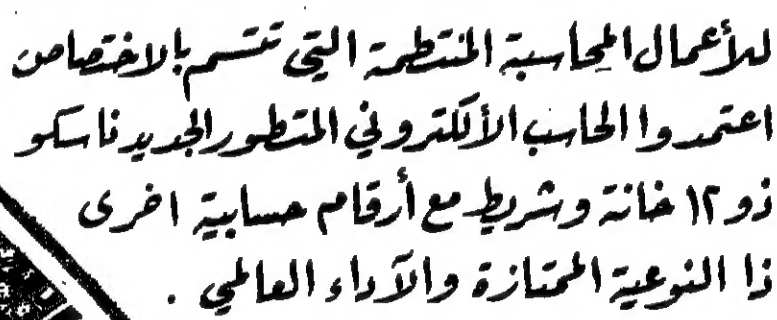 للأعمال المحاسبة المنتظمة التي تتسم بالاختصاص
اعتمدوا الحاسب الألكتروني المتطور الجديد ناسكو
ذو ١٢ خانة وشريط مع أرقام حسابية اخرى
ذا النوعية الممتازة والآداء العالمي .